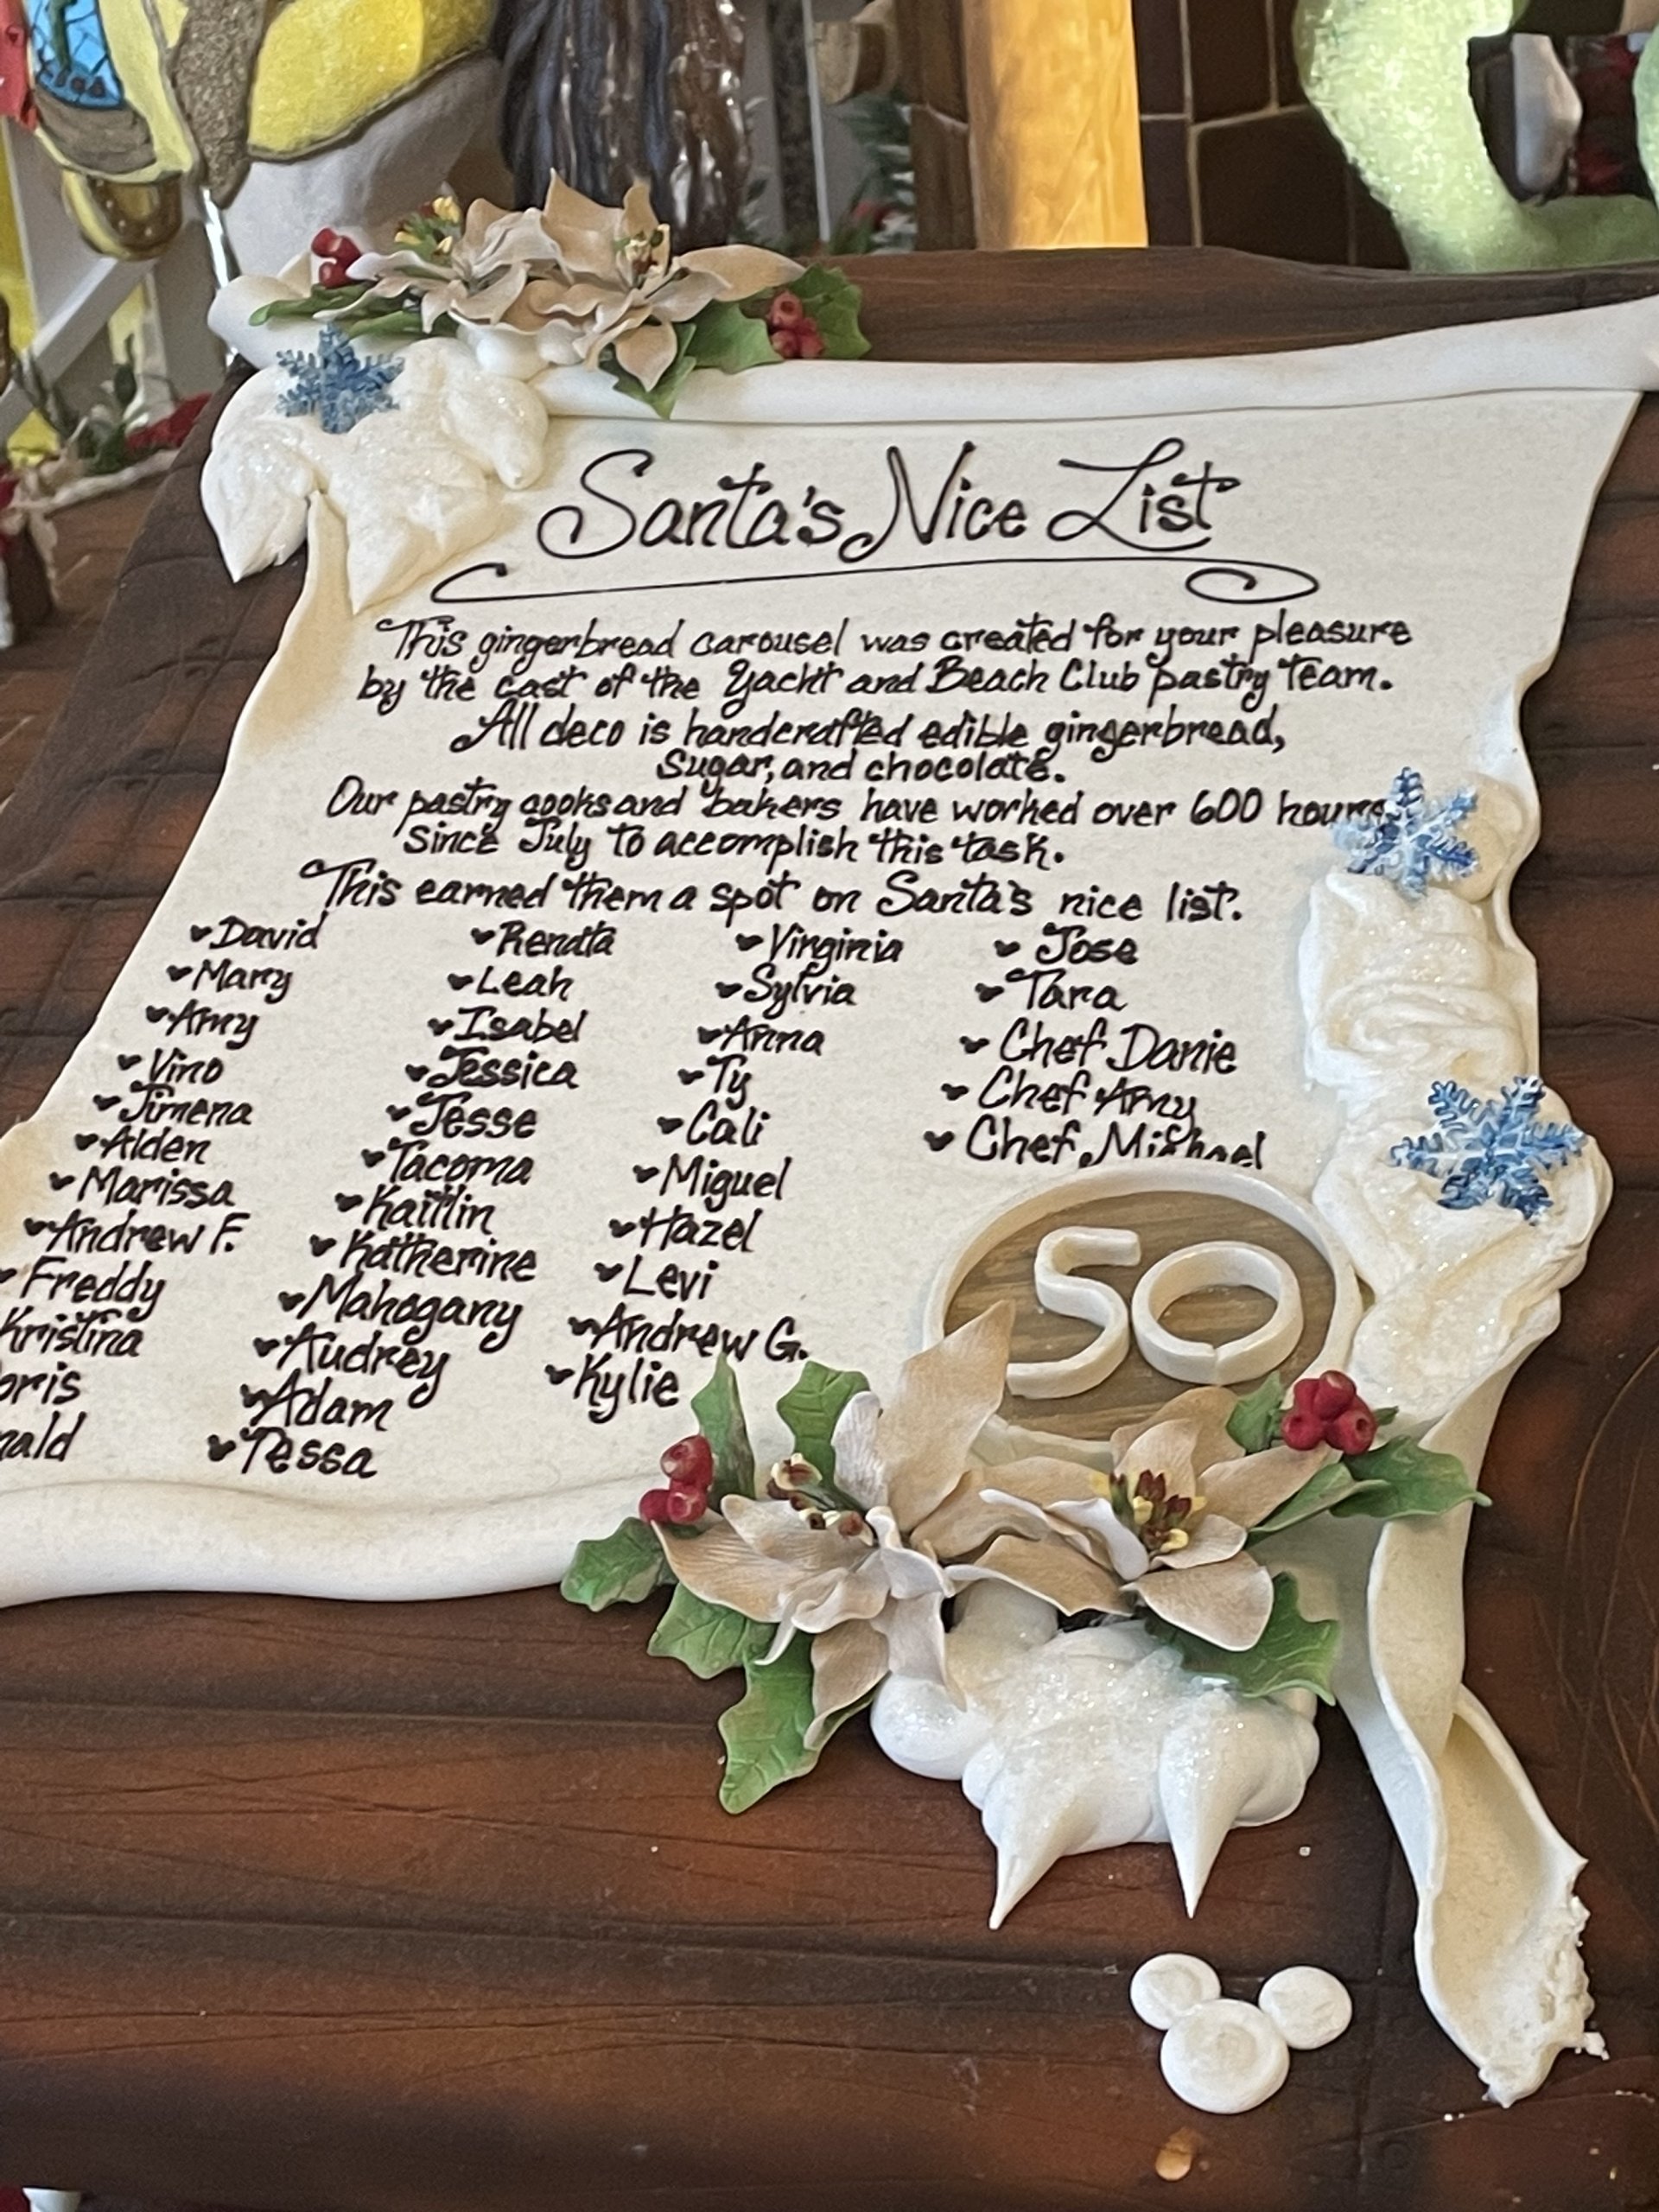 Santa's Nice List
This gingerbread carousel was created for your pleasure
by the cast of the Yacht and Beach Club pastry team.
All deco is handcrafted edible gingerbread,
Sugar, and chocolate.
Our pastry cooks and bakers have worked over 600 hours
since July to accomplish this task.
This earned them a spot on Santa's nice list.
David Renata Virginia Jose
Mary Leah Sylvia Tara
Amy Isabel Anna Chef Danie
Vino Jessica Ty Chef Amy
Jimena Jesse Cali Chef Michael
Alden Tacoma Miguel
Marissa Kaitlin Hazel
Andrew F. Katherine Levi
Freddy Mahogany Andrew G.
Kristina Audrey Kylie
Adam
Tessa
50